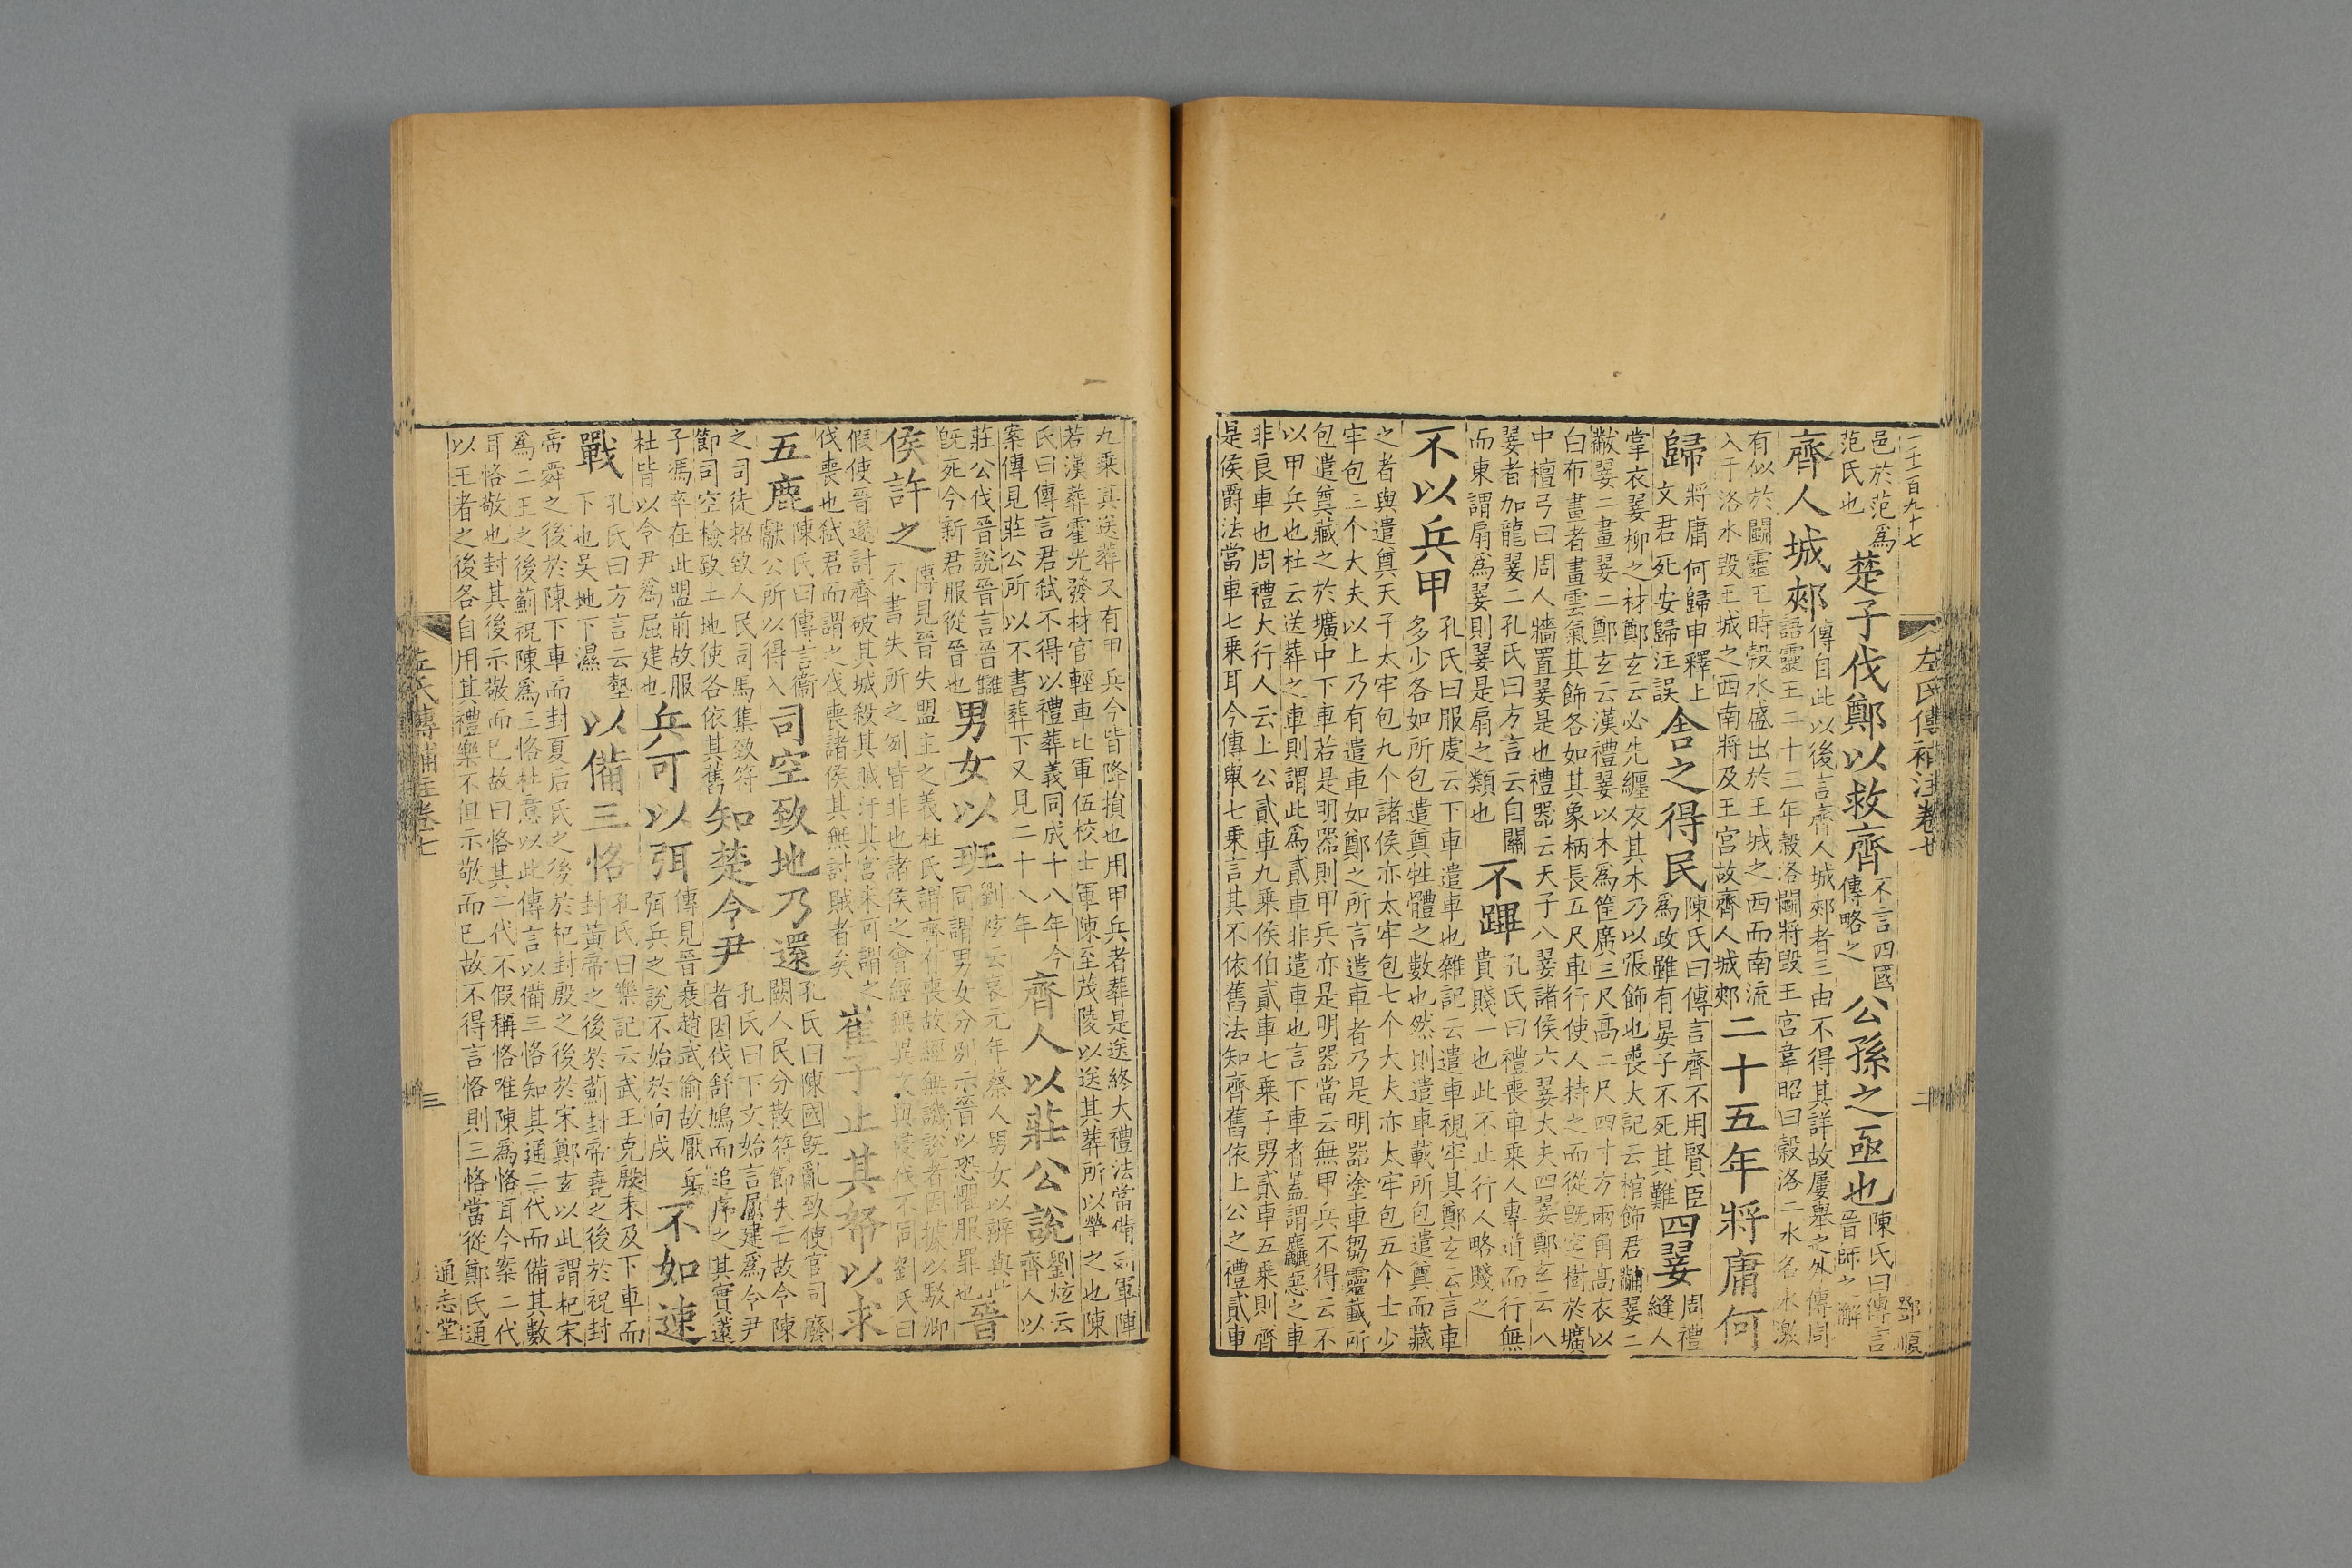 二百九十七
左氏傳補注卷七
二
鄧順
邑於范爲
范氏也
楚子伐鄭以救齊
不言四國
傳略之
公孫之亟也
陳氏曰傳言
晉師之解
齊人城郟
傳自此以後言齊人城郟者三由不得其詳故屢舉之外傳周
語靈王二十三年穀洛鬬將毀王宮韋昭曰穀洛二水名水激
有似於鬬靈王時穀水盛出於王城之西而南流
入于洛水毀王城之西南將及王宮故齊人城郟
二十五年將庸何
歸
將庸何歸申釋上
文君死安歸注誤
舍之得民
陳氏曰傳言齊不用賢臣
爲政雖有晏子不死其難
四翣
周禮
縫人
掌衣翣柳之材鄭玄云必先纏衣其木乃以張飾也喪大記云棺飾君黼翣二
黻翣二畫翣二鄭玄云漢禮翣以木爲筐廣三尺高二尺四寸方兩角高衣以
白布畫者畫雲氣其飾各如其象柄長五尺車行使人持之而從旣窆樹於壙
中檀弓曰周人牆置翣是也禮器云天子八翣諸侯六翣大夫四翣鄭玄云八
翣者加龍翣二孔氏曰方言云自關
而東謂扇爲翣則翣是扇之類也
不蹕
孔氏曰禮喪車乘人專道而行無
貴賤一也此不止行人略賤之
不以兵甲
孔氏曰服虔云下車遣車也雜記云遣車視牢具鄭玄云言車
多少各如所包遣奠牲體之數也然則遣車載所包遣奠而藏
之者與遣奠天子太牢包九个諸侯亦太牢包七个大夫亦太牢包五个士少
牢包三个大夫以上乃有遣車如鄭之所言遣車者乃是明器塗車芻靈藏所
包遣奠藏之於壙中下車若是明器則甲兵亦是明器當云無甲兵不得云不
以甲兵也杜云送葬之車則謂此爲貳車非遣車也言下車者蓋謂麤惡之車
非良車也周禮大行人云上公貳車九乘侯伯貳車七乘子男貳車五乘則齊
是侯爵法當車七乘耳今傳舉七乘言其不依舊法知齊舊依上公之禮貳車
九乘其送葬又有甲兵今皆降損也用甲兵者葬是送終大禮法當備列軍陣
若漢葬霍光發材官輕車北軍伍校士軍陳至茂陵以送其葬所以榮之也陳
氏曰傳言君弒不得以禮葬義同成十八年今
案傳見莊公所以不書葬下又見二十八年
齊人以莊公說
劉炫云
齊人以
莊公伐晉說晉言晉讎
旣死今新君服從晉也
男女以班
劉炫云哀元年蔡人男女以辨與此
同謂男女分別示晉以恐懼服罪也
晉
侯許之
傳見晉失盟主之義杜氏謂齊有喪故經無譏說者因據以駁卿
不書失所之例皆非也諸侯之會經無異文與淩伐不同劉氏曰
假使晉遂討齊破其城殺其賊汙其宮未可謂之
伐喪也弒君而謂之伐喪諸侯其無討賊者矣
崔子止其帑以求
五鹿
陳氏曰傳言衞
獻公所以得入
司空致地乃還
孔氏曰陳國旣亂致使官司廢
闕人民分散符節失亡故今陳
之司徒招致人民司馬集致符
節司空檢致土地使各依其舊
知楚令尹
孔氏曰下文始言屈建爲令尹
者因伐舒鳩而追序之其實薳
子馮卒在此盟前故服
杜皆以令尹爲屈建也
兵可以弭
傳見晉衰趙武偷故厭兵
弭兵之說不始於向戌
不如速
戰
孔氏曰方言云墊
下也吳地下濕
以備三恪
孔氏曰樂記云武王克殷未及下車而
封黃帝之後於薊封帝堯之後於祝封
帝舜之後於陳下車而封夏后氏之後於杞封殷之後於宋鄭玄以此謂杞宋
爲二王之後薊祝陳爲三恪杜意以此傳言以備三恪知其通二代而備其數
耳恪敬也封其後示敬而已故曰恪其二代不假稱恪唯陳爲恪耳今案二代
以王者之後各自用其禮樂不但示敬而已故不得言恪則三恪當從鄭氏通
左氏傳補注卷七
三
通志堂